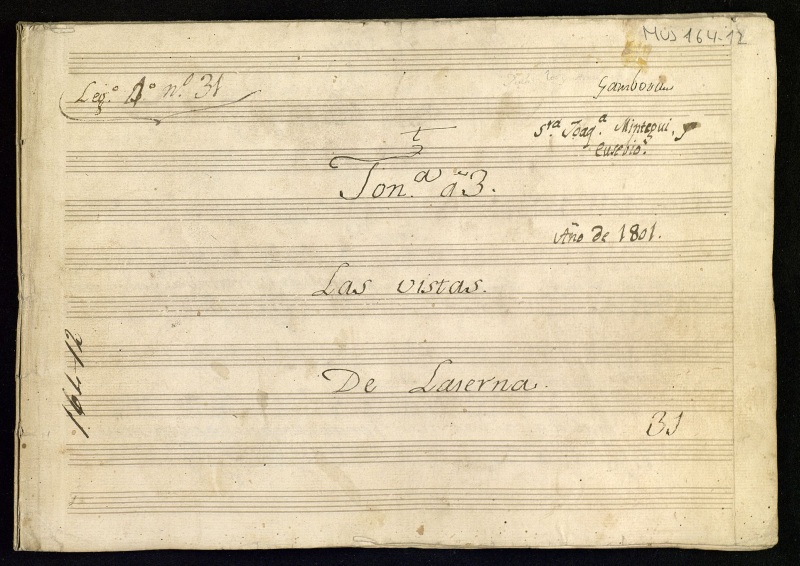 MUS 164-12
Leg.º 1.º n.º 31
Gamborin
S.ra Joaq.a Mintegui, y
Eusevio.
t
Ton.a a 3.
Año de 1801.
Las vistas.
De Laserna.
31
164-12